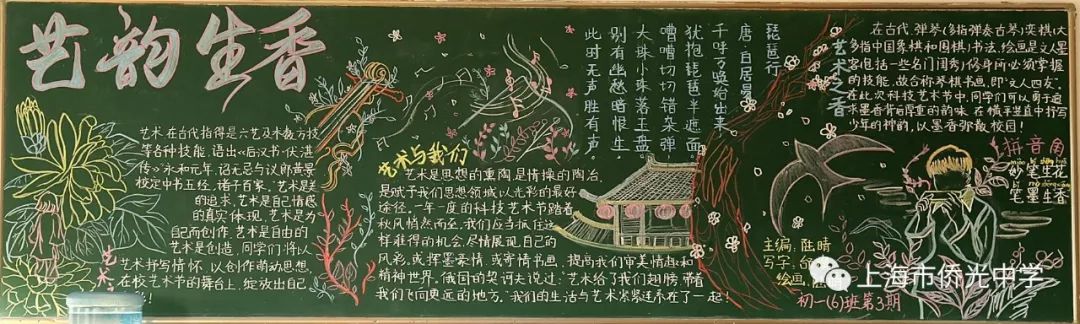 艺韵生香
艺术在古代指得是六艺及术数方技
等各种技能,语出《后汉书·伏湛
传》永和元年,记无忌与议郎黄景
校定中书五经、诸子百家、艺术是美
的追求,艺术是自己情感
的真实体现,艺术是为
自己而创作,艺术是自由的
艺术是创造,同学们将以
艺术抒写情怀,以创作萌动思想,
在校艺术节的舞台上,绽放出自己
艺术
艺术与我们
艺术是思想的熏陶,是情操的陶冶,
是赋予我们思想领域以光彩的最好
途径,一年一度的科技艺术节踏着
秋风悄然而至,我们应当抓住这
样难得的机会,尽情展现自己的
风彩,或挥墨豪情,或寄情书画,提高我们审美情趣和
精神世界。俄国的契诃夫说过:艺术给了我们翅膀,带着
我们飞向更远的地方。我们的生活与艺术紧紧连系在了一起!
琵琶行
唐·白居易
千呼万唤始出来
犹抱琵琶半遮面
嘈嘈切切错杂弹
大珠小珠落玉盘
别有幽愁暗恨生
此时无声胜有声
艺术之香
在古代,弹琴(多指弹奏古琴)弈棋(大
多指中国象棋和围棋)书法、绘画是文人墨
客(也括一些名门闺秀)修身所必须掌握
的技能,故合称琴棋书画,即"文人四友"。
在此次科技艺术节中,同学们可以勇于追
求墨香背后厚重的韵味,在横平竖直中抒写
少年的神韵,以墨香弥散校园!
拼音角
miào bǐ shēng huā
妙笔生花
笔墨生香
主编:陆晴
写字:
绘画:
初一(6)班第3期
上海市侨光中学